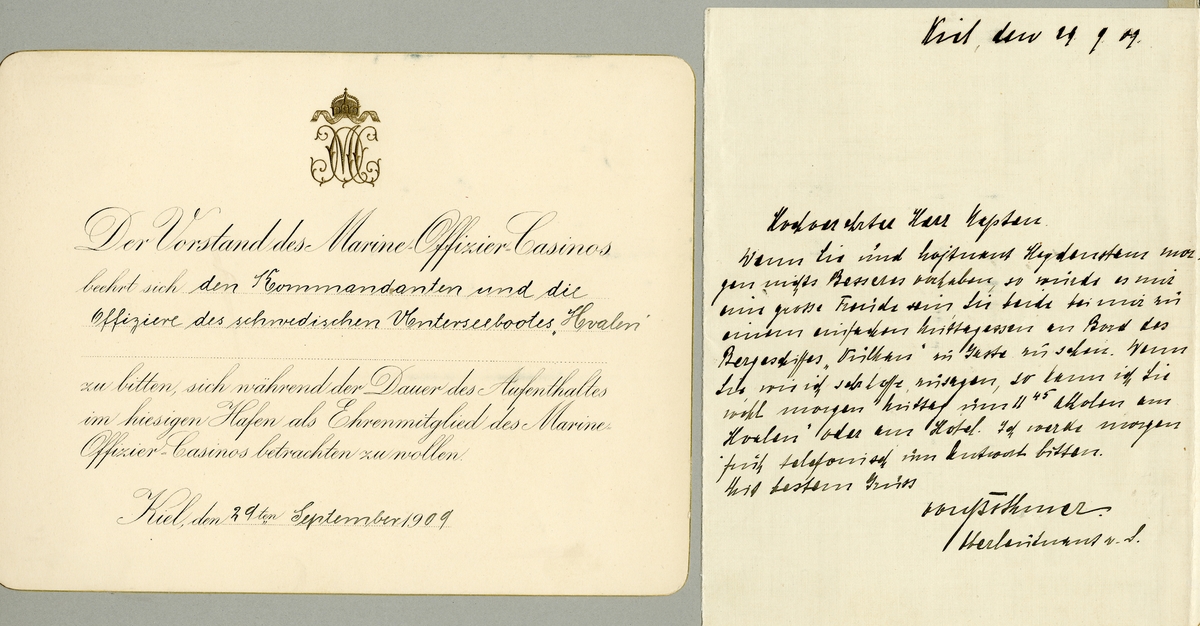 Der Vorstand des Marine-Offizier-Casinos
beehrt sich den Kommandanten und die
Offiziere des schwedischen Unterseebootes „Hvalen“
zu bitten, sich während der Dauer des Aufenthaltes
im hiesigen Hafen als Ehrenmitglied des Marine-
Offizier-Casinos betrachten zu wollen.
Kiel, den 29ten September 1909
Kiel, den 29 9 09.
Hochverehrter Herr Kapitän.
Wenn Sie und Leutnant Heydenstam mor-
gen nichts Besseres vorhaben, so würde es mir
eine große Freude sein Sie beide bei mir zu
einem einfachen Mittagessen an Bord des
Bergeschiffes „Vulkan“ zu Gaste zu sehen. Wenn
Sie wie ich hoffe zusagen, so kann ich Sie
wohl morgen Mittag um 11 45 abholen am
„Hvalen“ oder am Hotel. Ich werde morgen
früh telefonisch um Antwort bitten.
Mit bestem Gruss
von Bothmer.
Oberleutnant z. S.